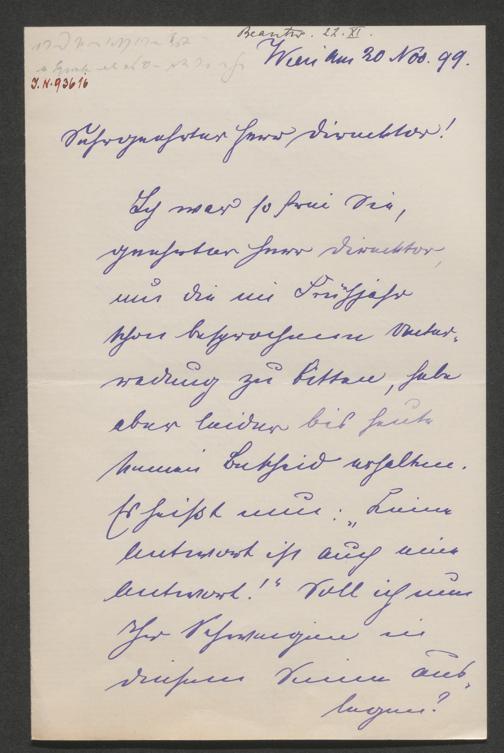 Beantw. 22. XI.
Wien am 20 Nov. 99.
I.N. 93616
Sehrgeehrter Herr Direcktor!
Ich war so frei Sie,
geehrter Herr Direcktor,
um die im Frühjahr
schon besprochene Unter-
redung zu bitten, habe
aber leider bis heute
keinen Bescheid erhalten.
Es heißt nun: „Keine
Antwort ist auch eine
Antwort!" Soll ich nun
Ihr Schweigen in
diesem Sinne aus-
legen?